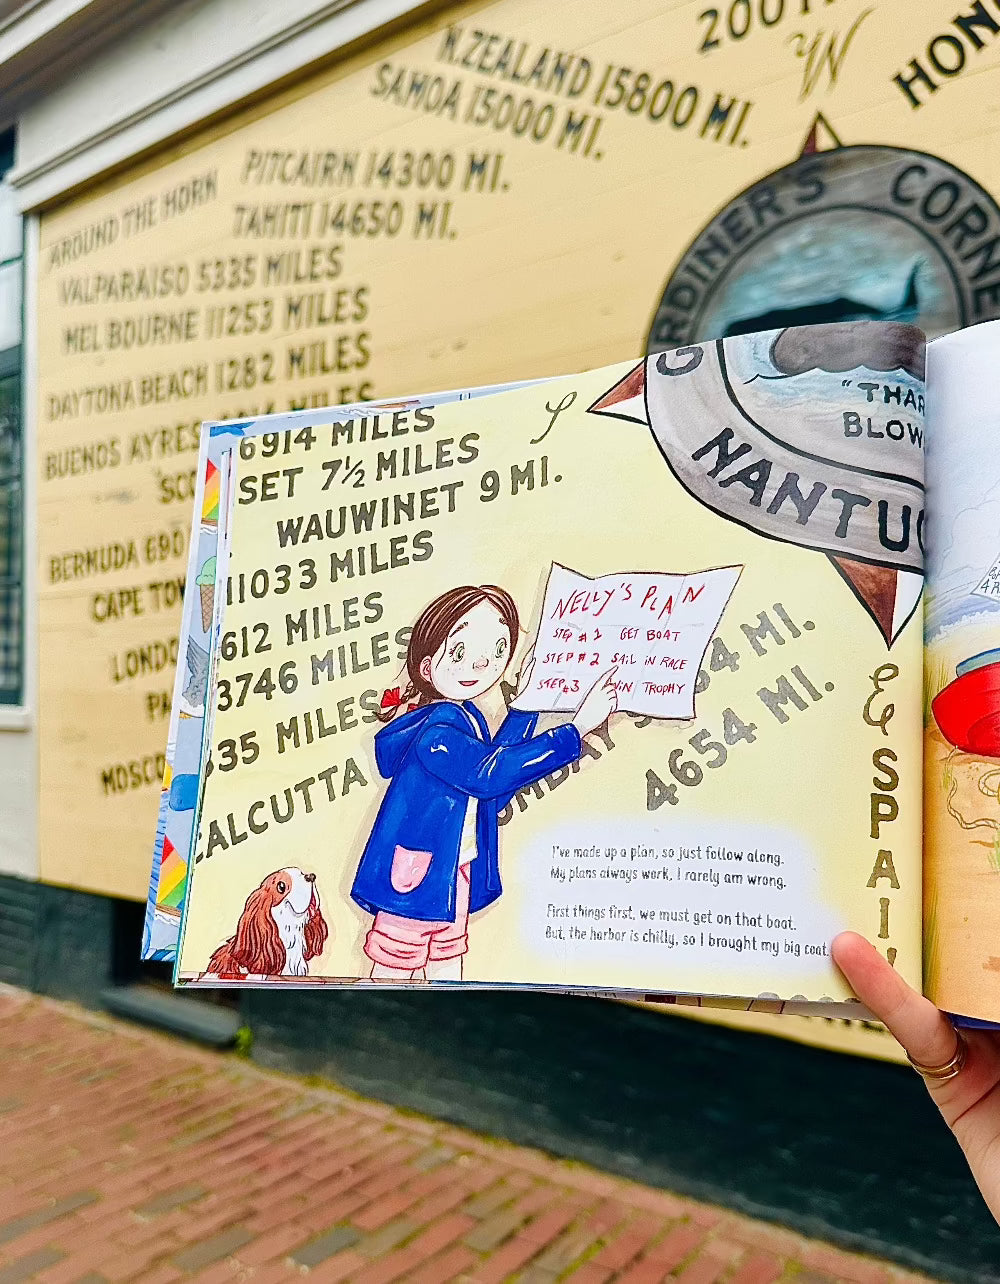 N.ZEALAND 15800 MI.
SAMOA 15000 MI.
PITCAIRN 14300 MI.
TAHITI 14650 MI.
AROUND THE HORN
VALPARAISO 5335 MILES
MELBOURNE 11253 MILES
DAYTONA BEACH 1282 MILES
BUENOS AYRES MILES
BERMUDA 690
CAPE
RDINER'S CORNE
HON
6914 MILES
SET 7½ MILES
WAUWINET 9 MI.
11033 MILES
612 MILES
3746 MILES
535 MILES
CALCUTTA
MI.
4654 MI.
"THAR
BLOW
NANTUC
E
SPAI
NELLY'S PLAN
STEP #1 GET BOAT
STEP #2 SAIL IN RACE
STEP #3 WIN TROPHY
I've made up a plan, so just follow along.
My plans always work, I rarely am wrong.
First things first, we must get on that boat.
But, the harbor is chilly, so I brought my big coat.